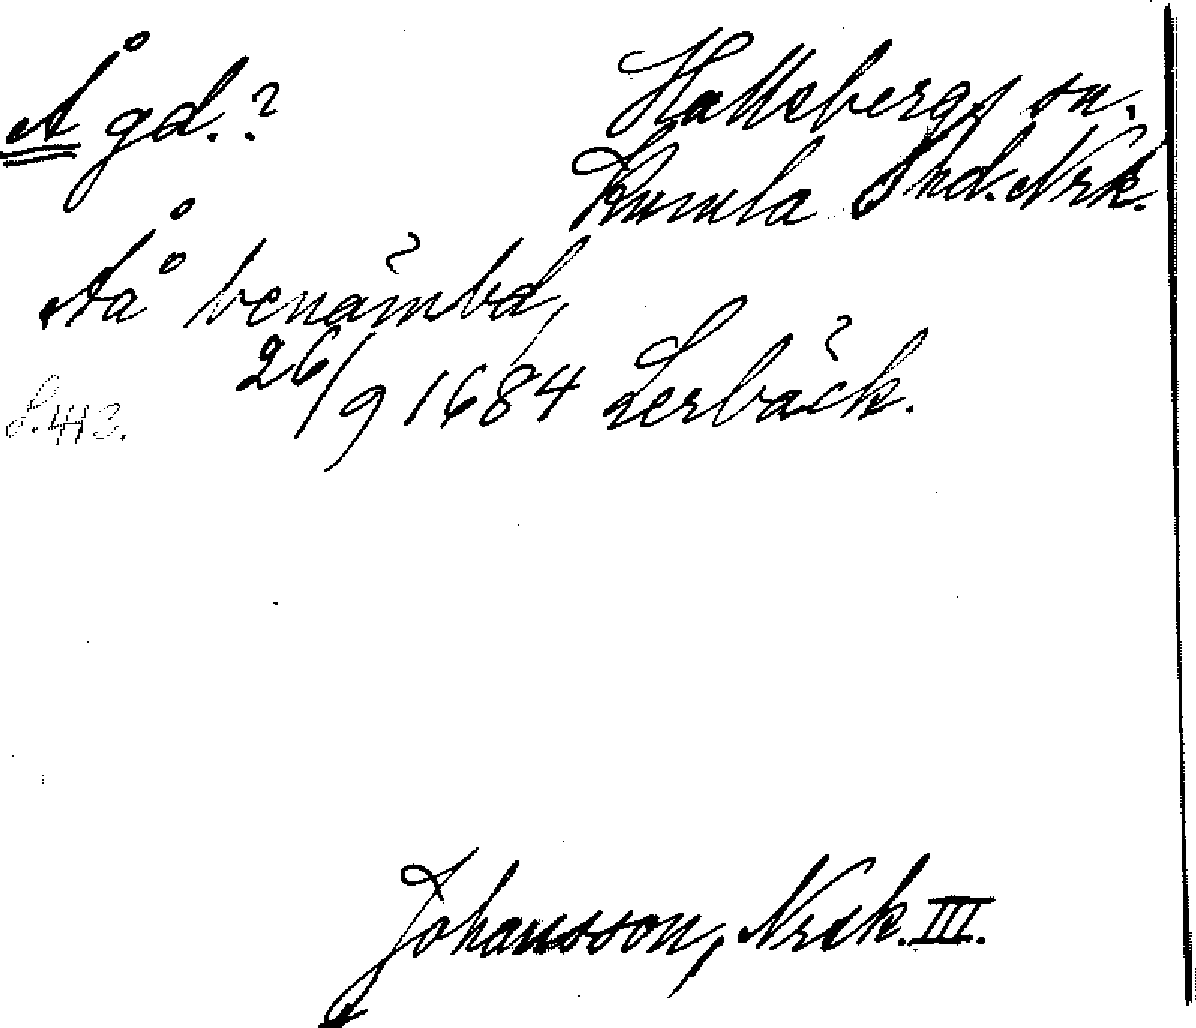 Å gd.?
Hallsbergs sn.
Kumla hd. Nrk.
Åå benämbd,
26/9 1684 Lerbäck.
S. 443.
Johansson, Nrsk. III.